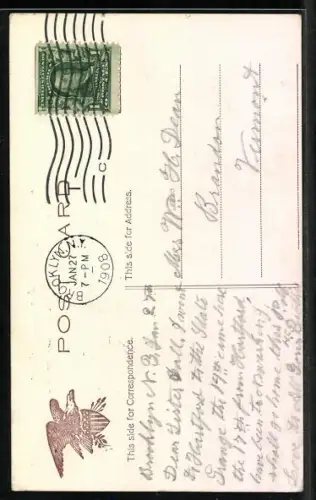 POST CARD
BROOKLYN, N.Y.
JAN 27
7-PM
1908
C
This side for Correspondence.
This side for Address.
Brooklyn N.Y. Jan 27th
Dear Sister Bell, I went
to Hartford to the State
Grange the 14th came here
the 17th from Hartford
have been to
shall go home this
Love to all
Mrs Wm H. Dean
Brandon
Vermont